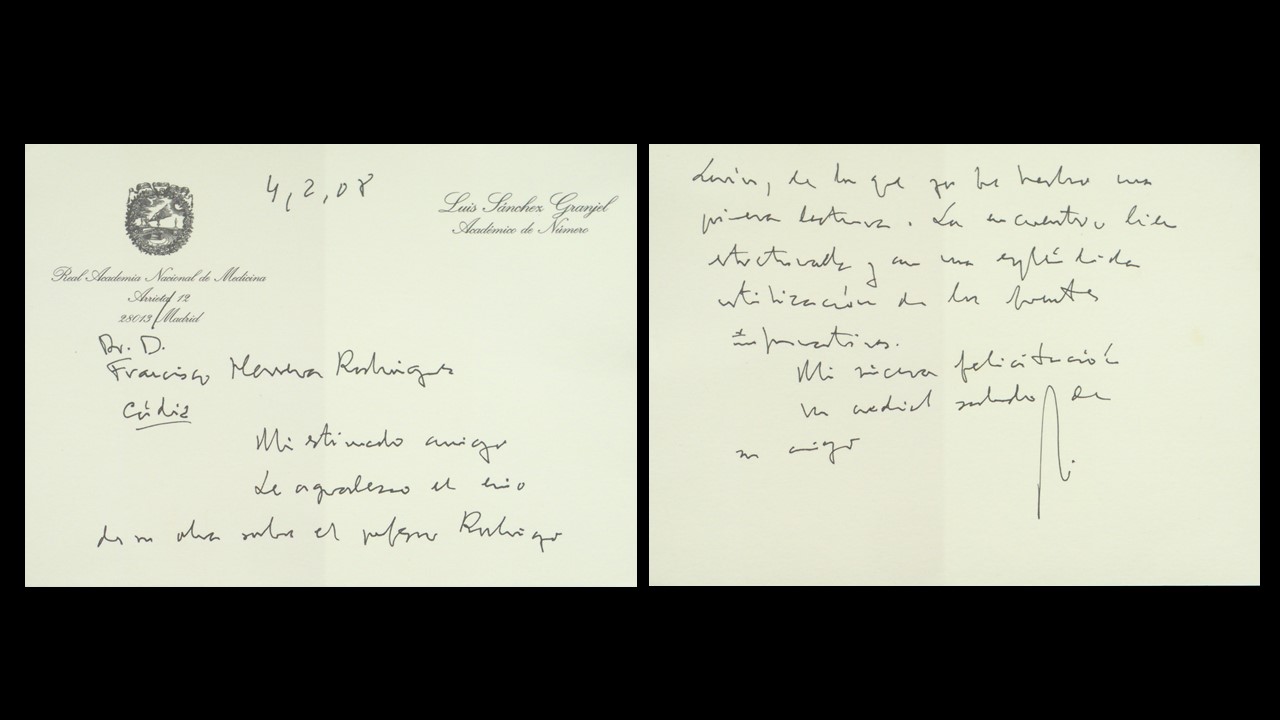 4,2,08
Luis Sánchez Granjel
Académico de Número
Real Academia Nacional de Medicina
Arrieta, 12
28013 Madrid
Dr. D.
Francisco Herrera Rodríguez
Cádiz
Mi estimado amigo
Le agradezco el envío
de su obra sobre el profesor Rodrigo
Lavín, de la que ya he hecho una
primera lectura. La encuentro bien
estructurada y con una espléndida
utilización de las fuentes
informativas.
Mi sincera felicitación
Un cordial saludo de
su amigo